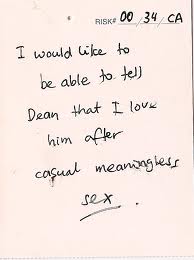 RISK# 00 / 34 / CA
I would like to
be able to tell
Dean that I love
him after
casual meaningless
sex.